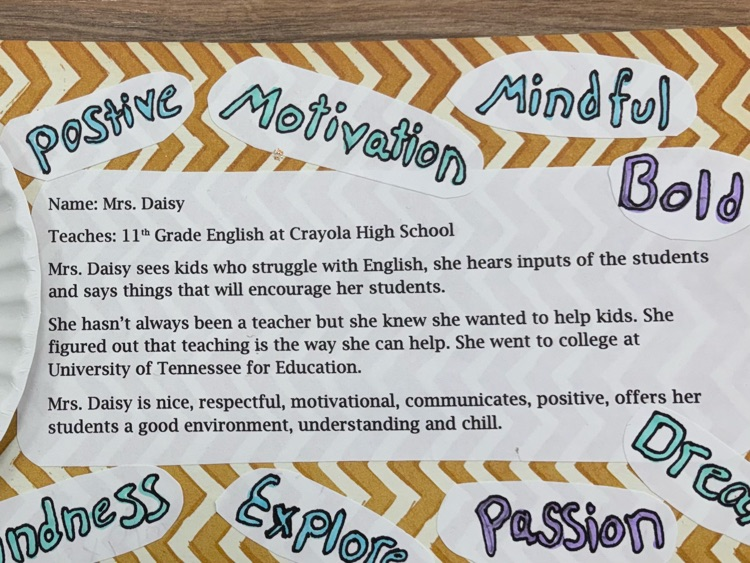 Postive
Motivation
Mindful
Bold
Name: Mrs. Daisy
Teaches: 11th Grade English at Crayola High School
Mrs. Daisy sees kids who struggle with English, she hears inputs of the students
and says things that will encourage her students.
She hasn't always been a teacher but she knew she wanted to help kids. She
figured out that teaching is the way she can help. She went to college at
University of Tennessee for Education.
Mrs. Daisy is nice, respectful, motivational, communicates, positive, offers her
students a good environment, understanding and chill.
Drea
ndness
Explore
Passion